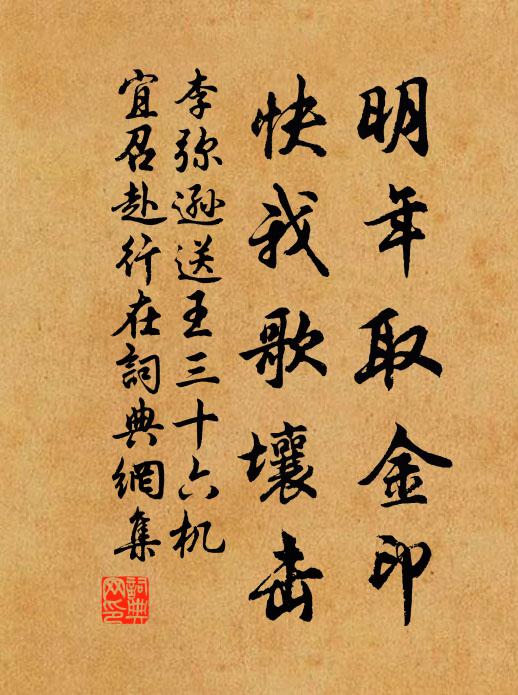 明年取金印
快我歌壤击
李弥逊送王三十六机
宜召赴行在詞典網集
詞典网印